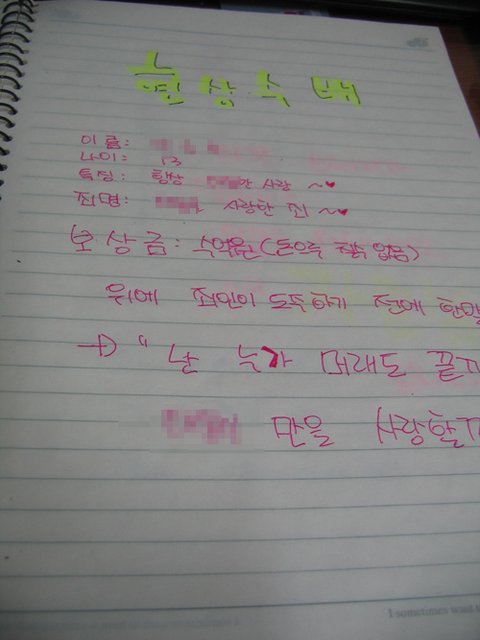 현 상 수 배
이름:
나이: 13
특징: 항상 사랑 ~♥
죄명: 사랑한 죄 ~♥
보상금: 수억원(돈으로 잴수 없음)
위에 죄인이 도주하기 전에 한말
→ " 난 누가 머래도
만을
I sometimes want